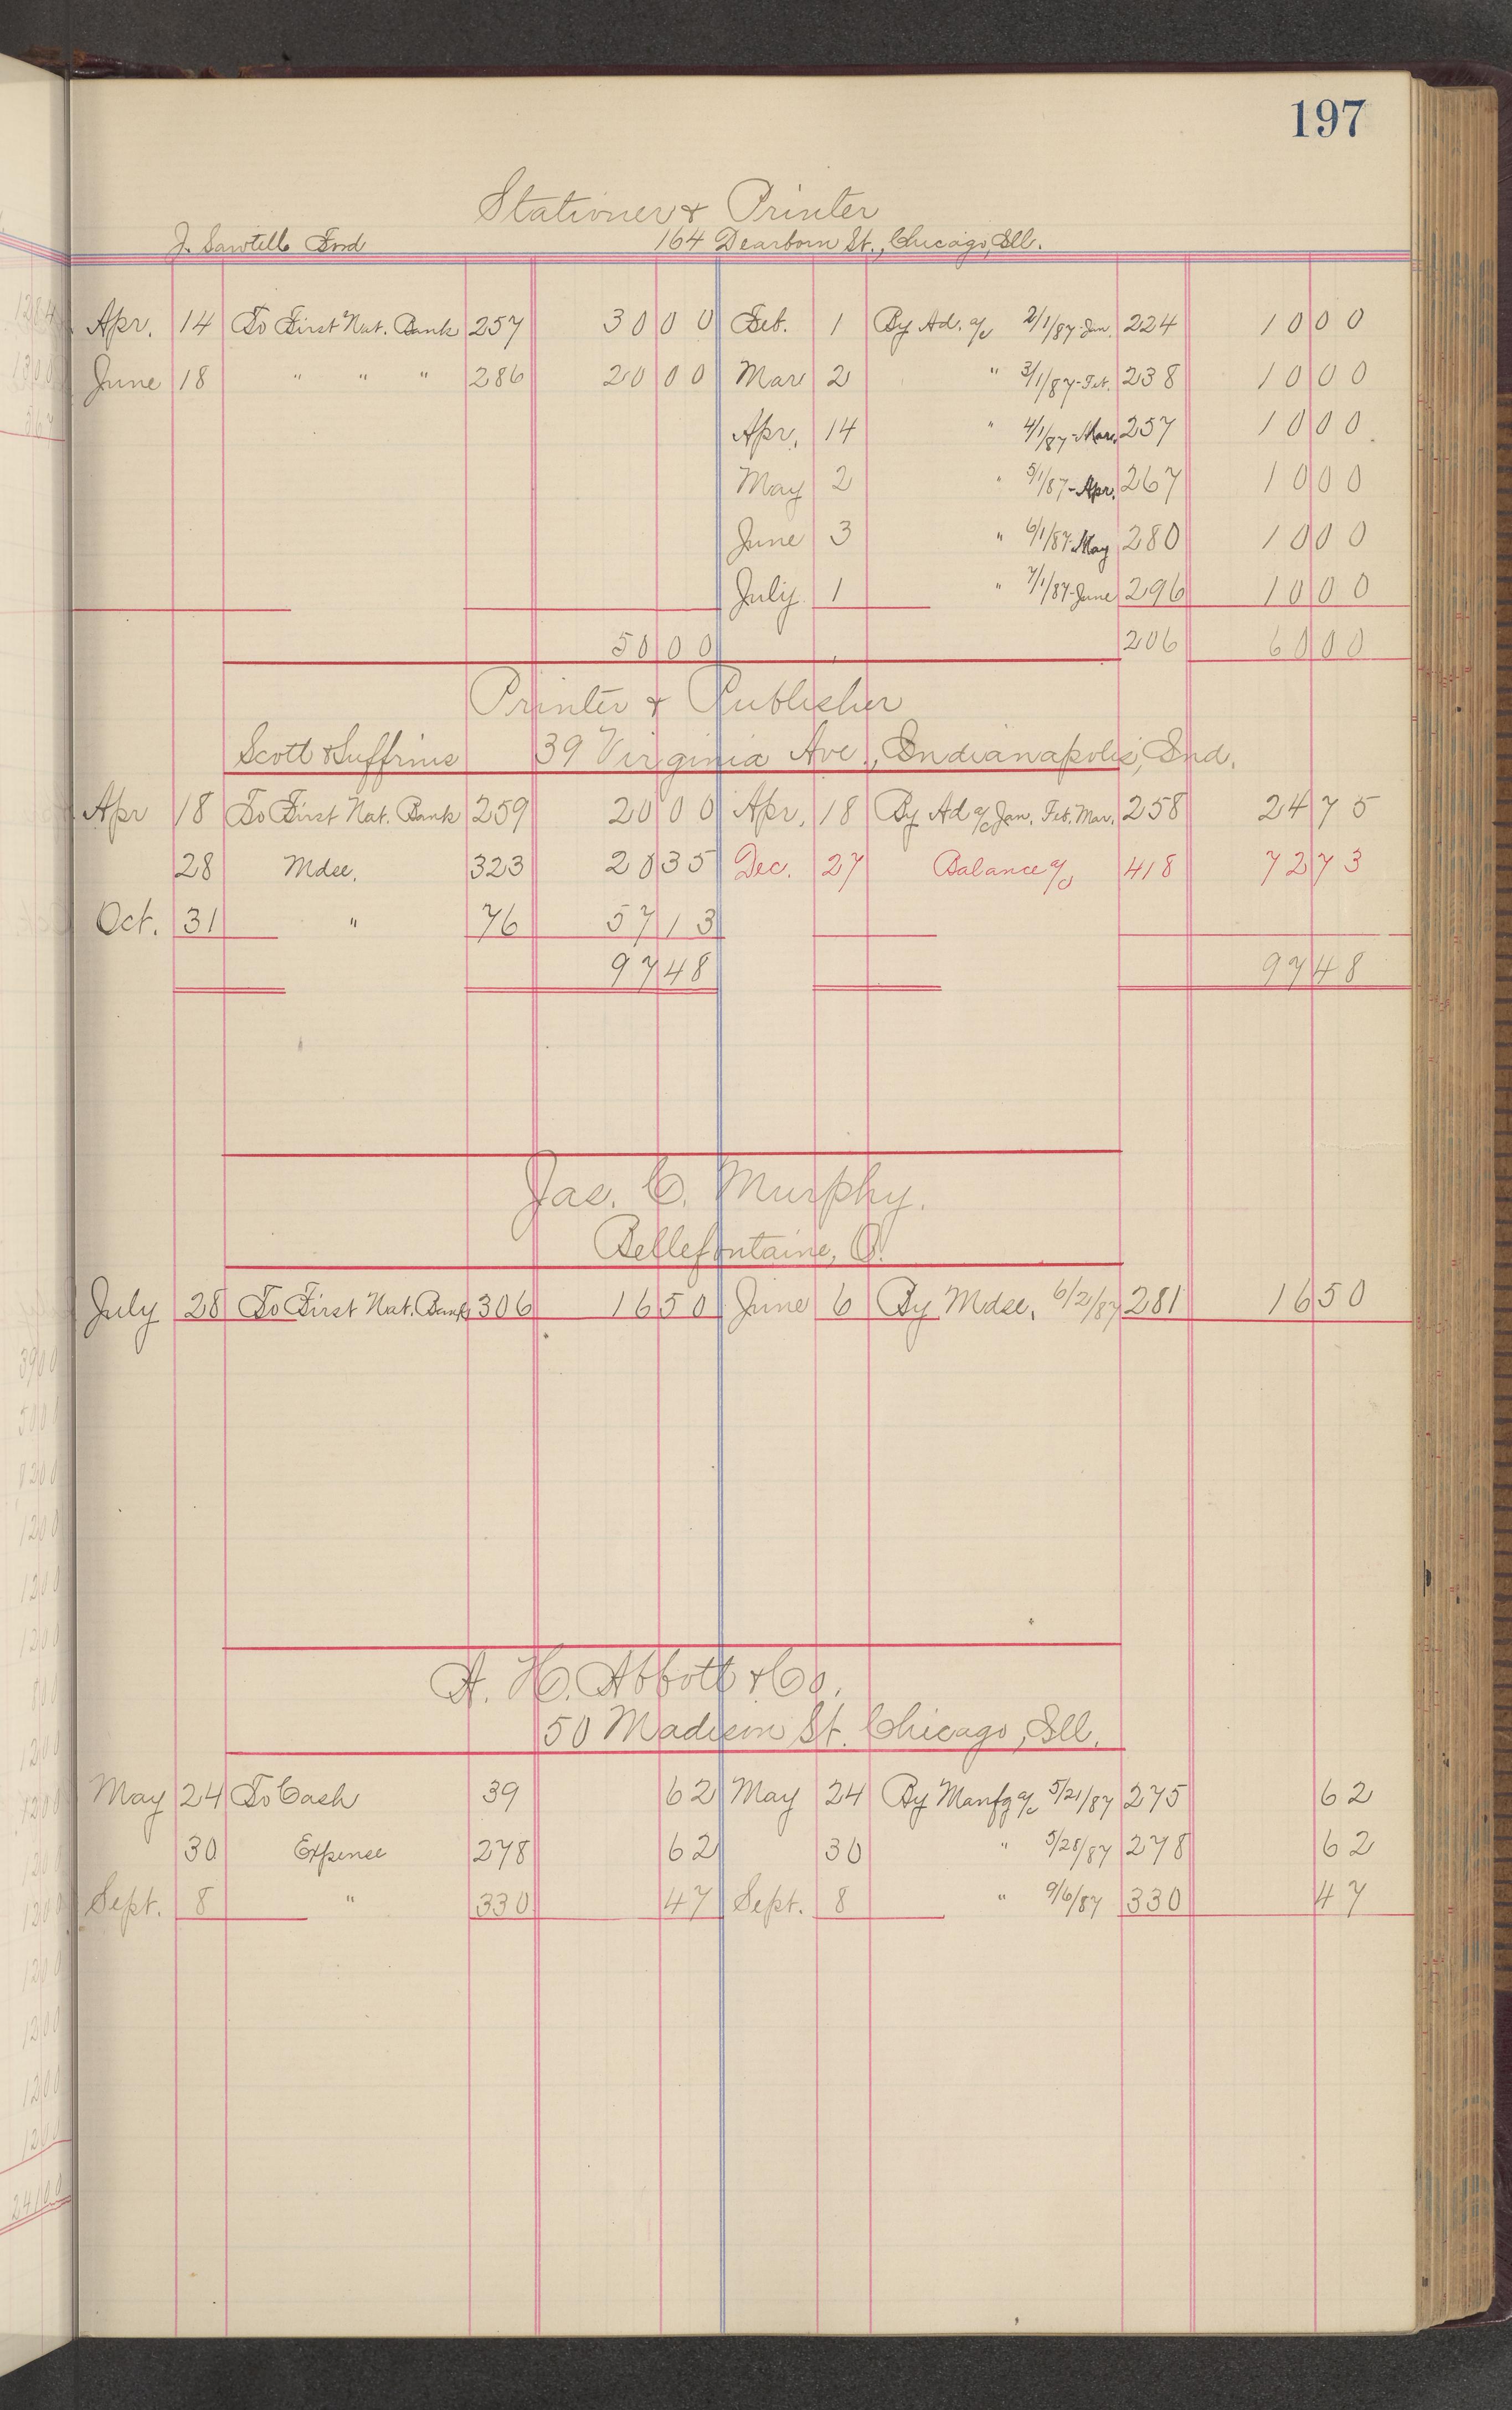 197
Stationer & Printer
J. Sawtell Ford 164 Dearborn St., Chicago, Ill.
Apr. 14 To First Nat. Bank 257 30 00 Feb. 1 By Ad. a/c 2/1/87-Jan. 224 10 00
June 18 " " " 286 20 00 Mar 2 " 3/1/87-Feb. 238 10 00
Apr. 14 " 4/1/87-Mar. 257 10 00
May 2 " 5/1/87-Apr. 267 10 00
June 3 " 6/1/87-May 280 10 00
July 1 " 7/1/87-June 296 10 00
50 00 206 60 00
Printer & Publisher
Scott & 39 Virginia Ave., Indianapolis, Ind.
Apr 18 To First Nat. Bank 259 20 00 Apr. 18 By Ad a/c Jan. Feb. Mar. 258 24 75
28 Mdse. 323 20 35 Dec. 27 Balance a/c 418 72 73
Oct. 31 " 76 57 13
97 48 97 48
Jas. C. Murphy.
Bellefontaine, O.
July 28 To First Nat. Bank 306 16 50 June 6 By Mdse. 6/2/87 281 16 50
A. H. Abbott & Co.
50 Madison St. Chicago, Ill.
May 24 To Cash 39 62 May 24 By Manfg a/c 5/21/87 275 62
30 Expense 278 62 30 " 5/28/87 278 62
Sept. 8 " 330 47 Sept. 8 " 9/6/87 330 47